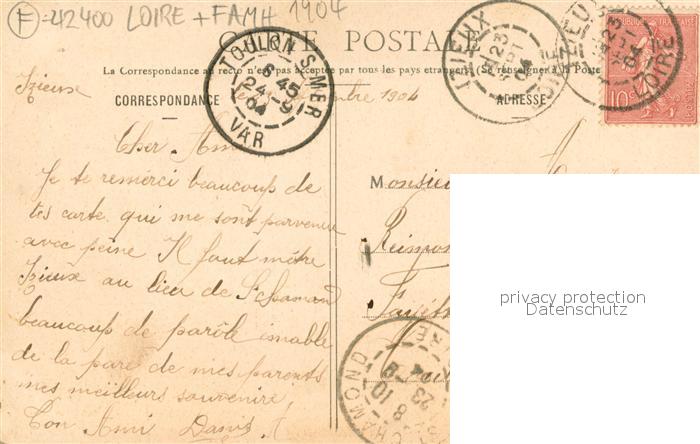 F = 42400 LOIRE + FAMH 1904
CARTE POSTALE
La Correspondance au recto n'est pas acceptée par tous les pays étrangers (Se renseigner à la Poste
CORRESPONDANCE
ADRESSE
TOULON-S-MER
6 45
24-9
04
VAR
IZIEUX
23
04
LOIRE
IZIEUX
23
04
LOIRE
10
Izieux 1904
Cher Ami
Je te remerci beaucoup de
tes carte qui me sont parvenu
avec peine Il faut mêtre
Izieux au lieu de St chamond
beaucoup de parôle imable
de la pare de mes parents
mes meilleurs souvenire
Ton Ami Danis
Monsieu
Reimon
privacy protection
Datenschutz
CHAMOND
8 10
23